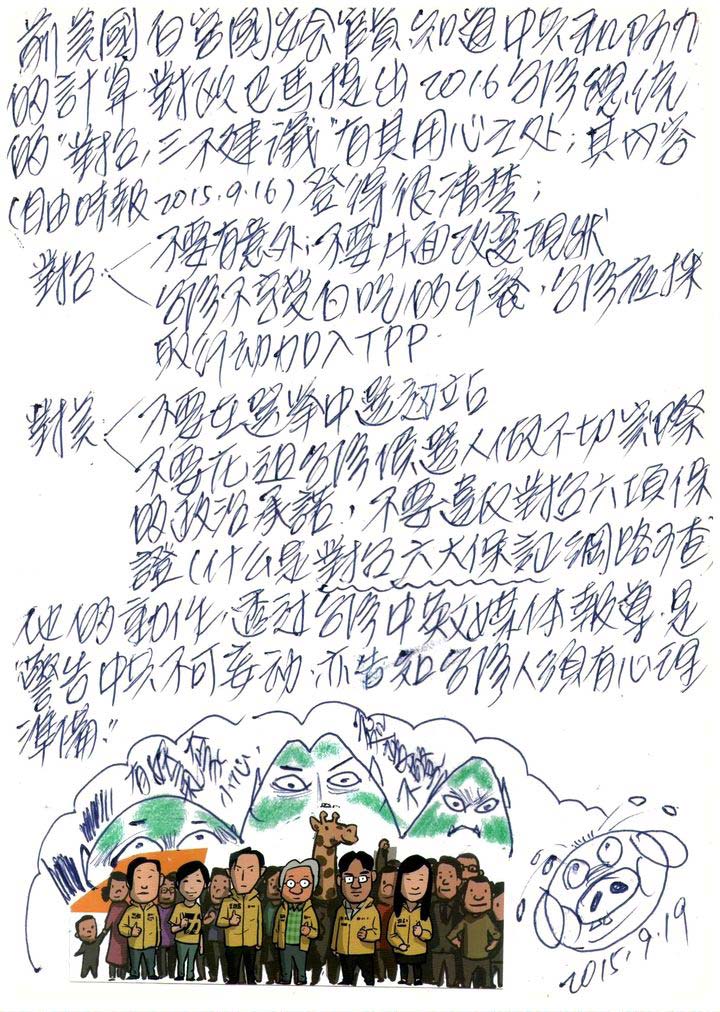 前美國白宮國安会官員知道中共和
的計算,對欧巴馬提出2016台湾總統
的"對台,三不建議"有其用心之处;其内容
(自由時報2015.9.16)登得很清楚;
對台 不要有意外;不要片面改變現狀
台湾不享受白吃的午餐,台湾應採
取行动加入TPP.
對美 不要在選舉中選邊站
不要花 台湾候選人做不切實際
的政治承諾,不要違反對台六項保
證(什么是對台六大保証網路可查)
他的動作,透过台湾中英文媒体報導.是
"警告中共不可妄动,亦告知台湾人須有心理
準備."
小心
不
2015.9.19